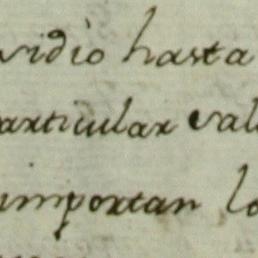 vidio hasta
articular val
importan lo